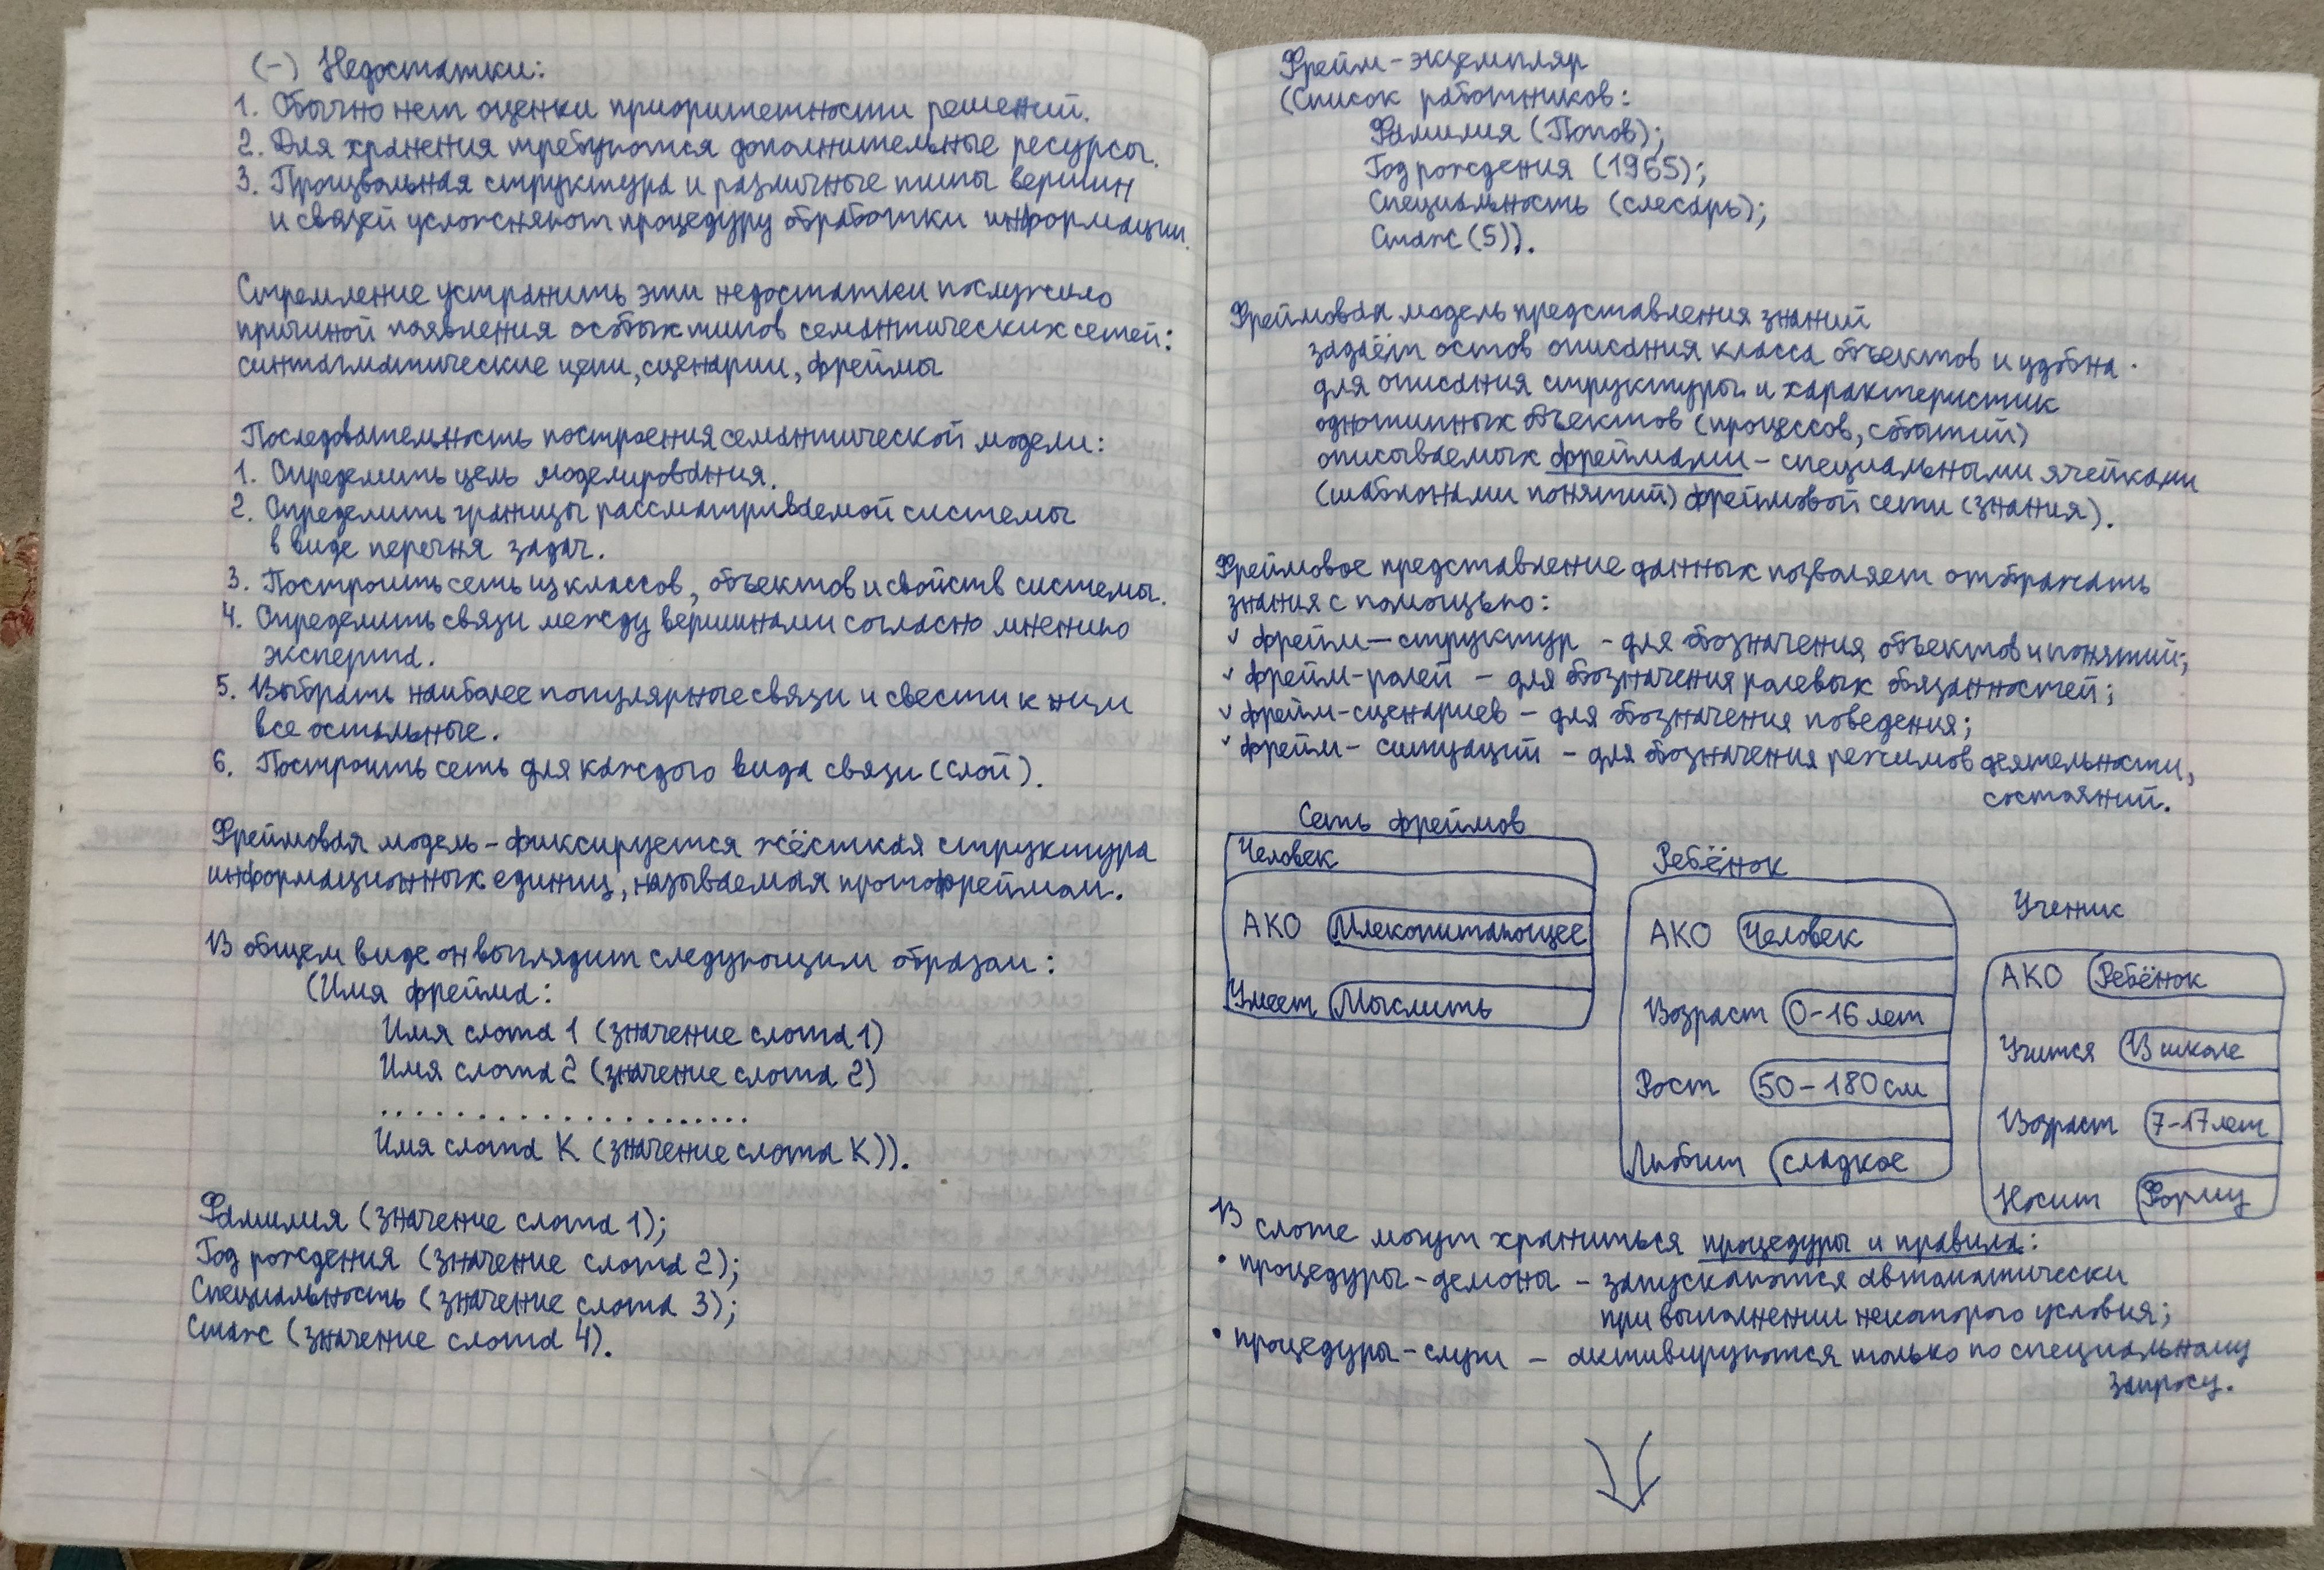 (-) Недостатки:
1. Обычно нет оценки приоритетности решений.
2. Для хранения требуются дополнительные ресурсы.
3. Произвольная структура и различные типы вершин
и связей усложняют процедуру обработки информации.
Стремление устранить эти недостатки послужило
причиной появления особых типов семантических сетей:
синтагматические цепи, сценарии, фреймы
Последовательность построения семантической модели:
1. Определить цель моделирования.
2. Определить границы рассматриваемой системы
в виде перечня задач.
3. Построить сеть из классов, объектов и свойств системы.
4. Определить связи между вершинами согласно мнению
эксперта.
5. Выбрать наиболее популярные связи и свести к ним
все остальные.
6. Построить сеть для каждого вида связи (слой).
Фреймовая модель - фиксируется жёсткая структура
информационных единиц, называемая протофреймом.
В общем виде он выглядит следующим образом:
(Имя фрейма:
Имя слота 1 (значение слота 1)
Имя слота 2 (значение слота 2)
......................
Имя слота К (значение слота К)).
Фамилия (значение слота 1);
Год рождения (значение слота 2);
Специальность (значение слота 3);
Стаж (значение слота 4).
Фрейм-экземпляр
(Список работников:
Фамилия (Попов);
Год рождения (1965);
Специальность (слесарь);
Стаж (5)).
Фреймовая модель представления знаний
задаёт остов описания класса объектов и удобна
для описания структуры и характеристик
однотипных объектов (процессов, событий)
описываемых фреймами - специальными ячейками
(шаблонами понятий) фреймовой сети (знания).
Фреймовое представление данных позволяет отображать
знания с помощью:
✓ фрейм-структур - для обозначения объектов и понятий;
✓ фрейм-ролей - для обозначения ролевых обязанностей;
✓ фрейм-сценариев - для обозначения поведения;
✓ фрейм-ситуаций - для обозначения режимов деятельности,
состояний.
Сеть фреймов
Человек
АКО Млекопитающее
Умеет Мыслить
Ребёнок
АКО Человек
Возраст 0-16 лет
Рост 50-180 см
Любит сладкое
Ученик
АКО Ребёнок
Учится В школе
Возраст 7-17 лет
Носит Форму
В слоте могут храниться процедуры и правила:
• процедуры-демоны - запускаются автоматически
при выполнении некоторого условия;
• процедуры-слуги - активируются только по специальному
запросу.